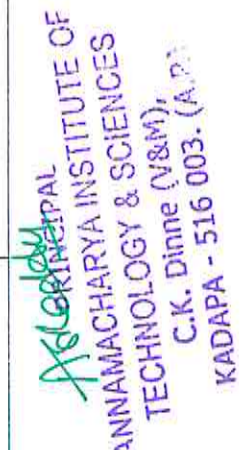 PRINCIPAL
ANNAMACHARYA INSTITUTE OF
TECHNOLOGY & SCIENCES
C.K. Dinne (V&M),
KADAPA - 516 003. (A.P.)